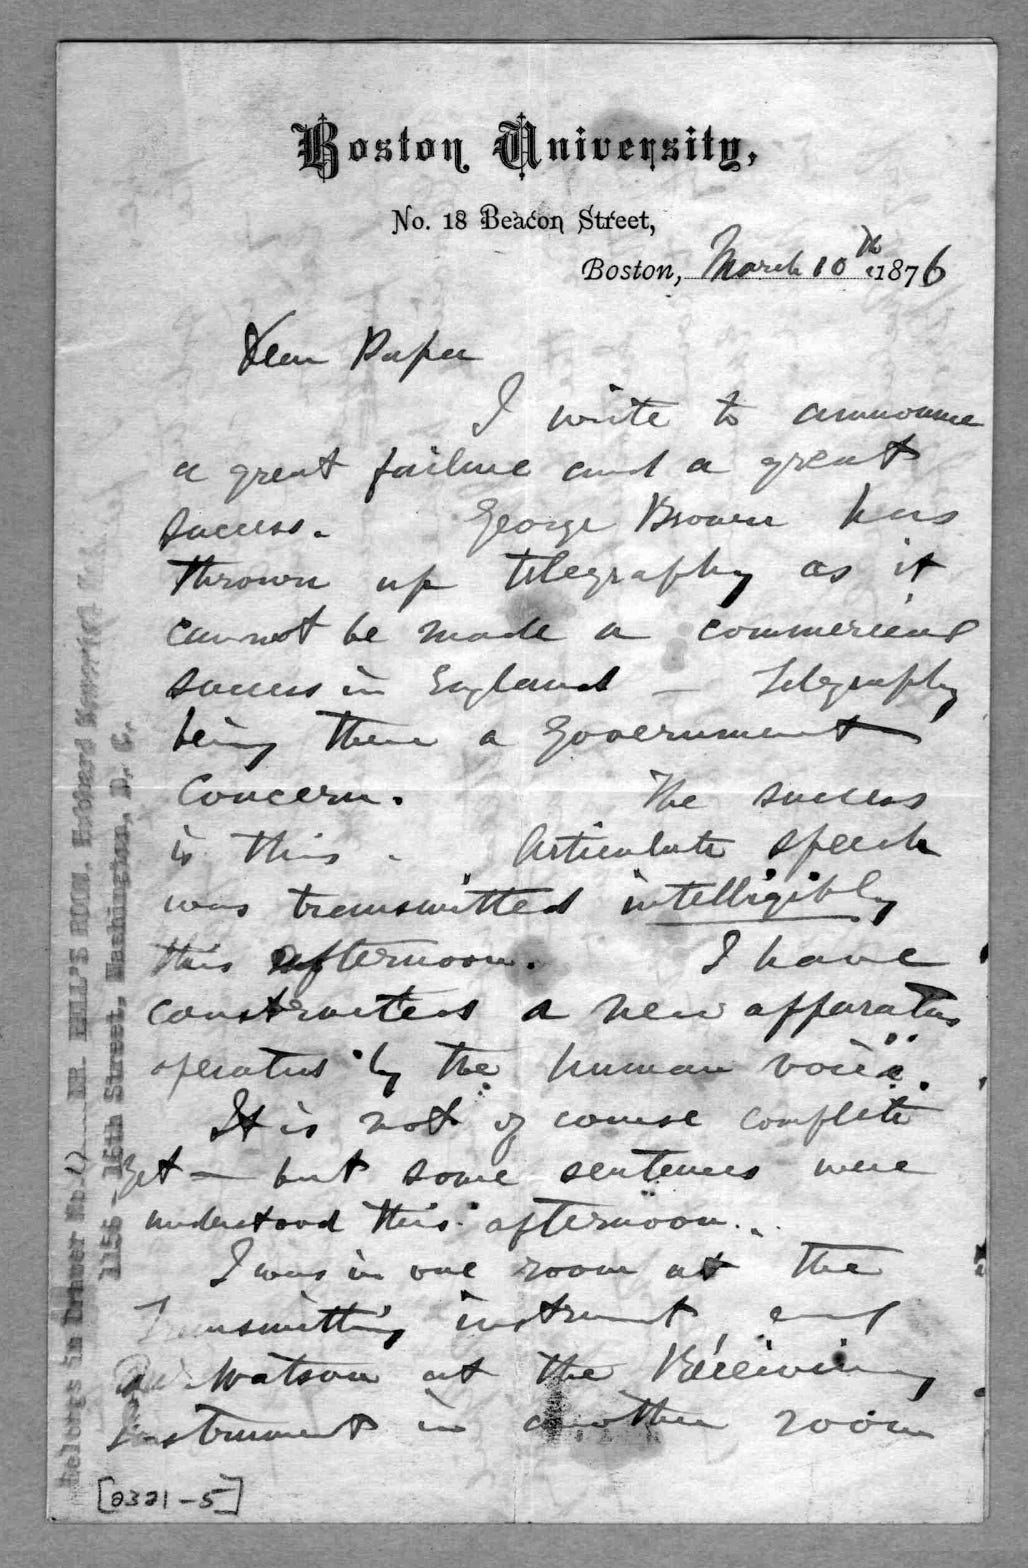 Boston University,
No. 18 Beacon Street,
Boston, March 10th 1876
Dear Papa
I write to announce
a great failure and a great
success. George Brown has
thrown up telegraphy as it
cannot be made a commercial
success in England — Telegraphy
being there a Government
concern. The success
is this. Articulate speech
was transmitted intelligibly
this afternoon. I have
constructed a new apparatus
operated by the human voice.
It is not of course complete
yet — but some sentences were
understood this afternoon.
I was in one room at the
Transmitting instrument, and
Mr. Watson at the Receiving
instrument in another room
[2321-5]
Belongs in Drawer No. DR. BELL'S HOME. Hubbard Memorial
1155 - 16th Street, Washington, D. C.